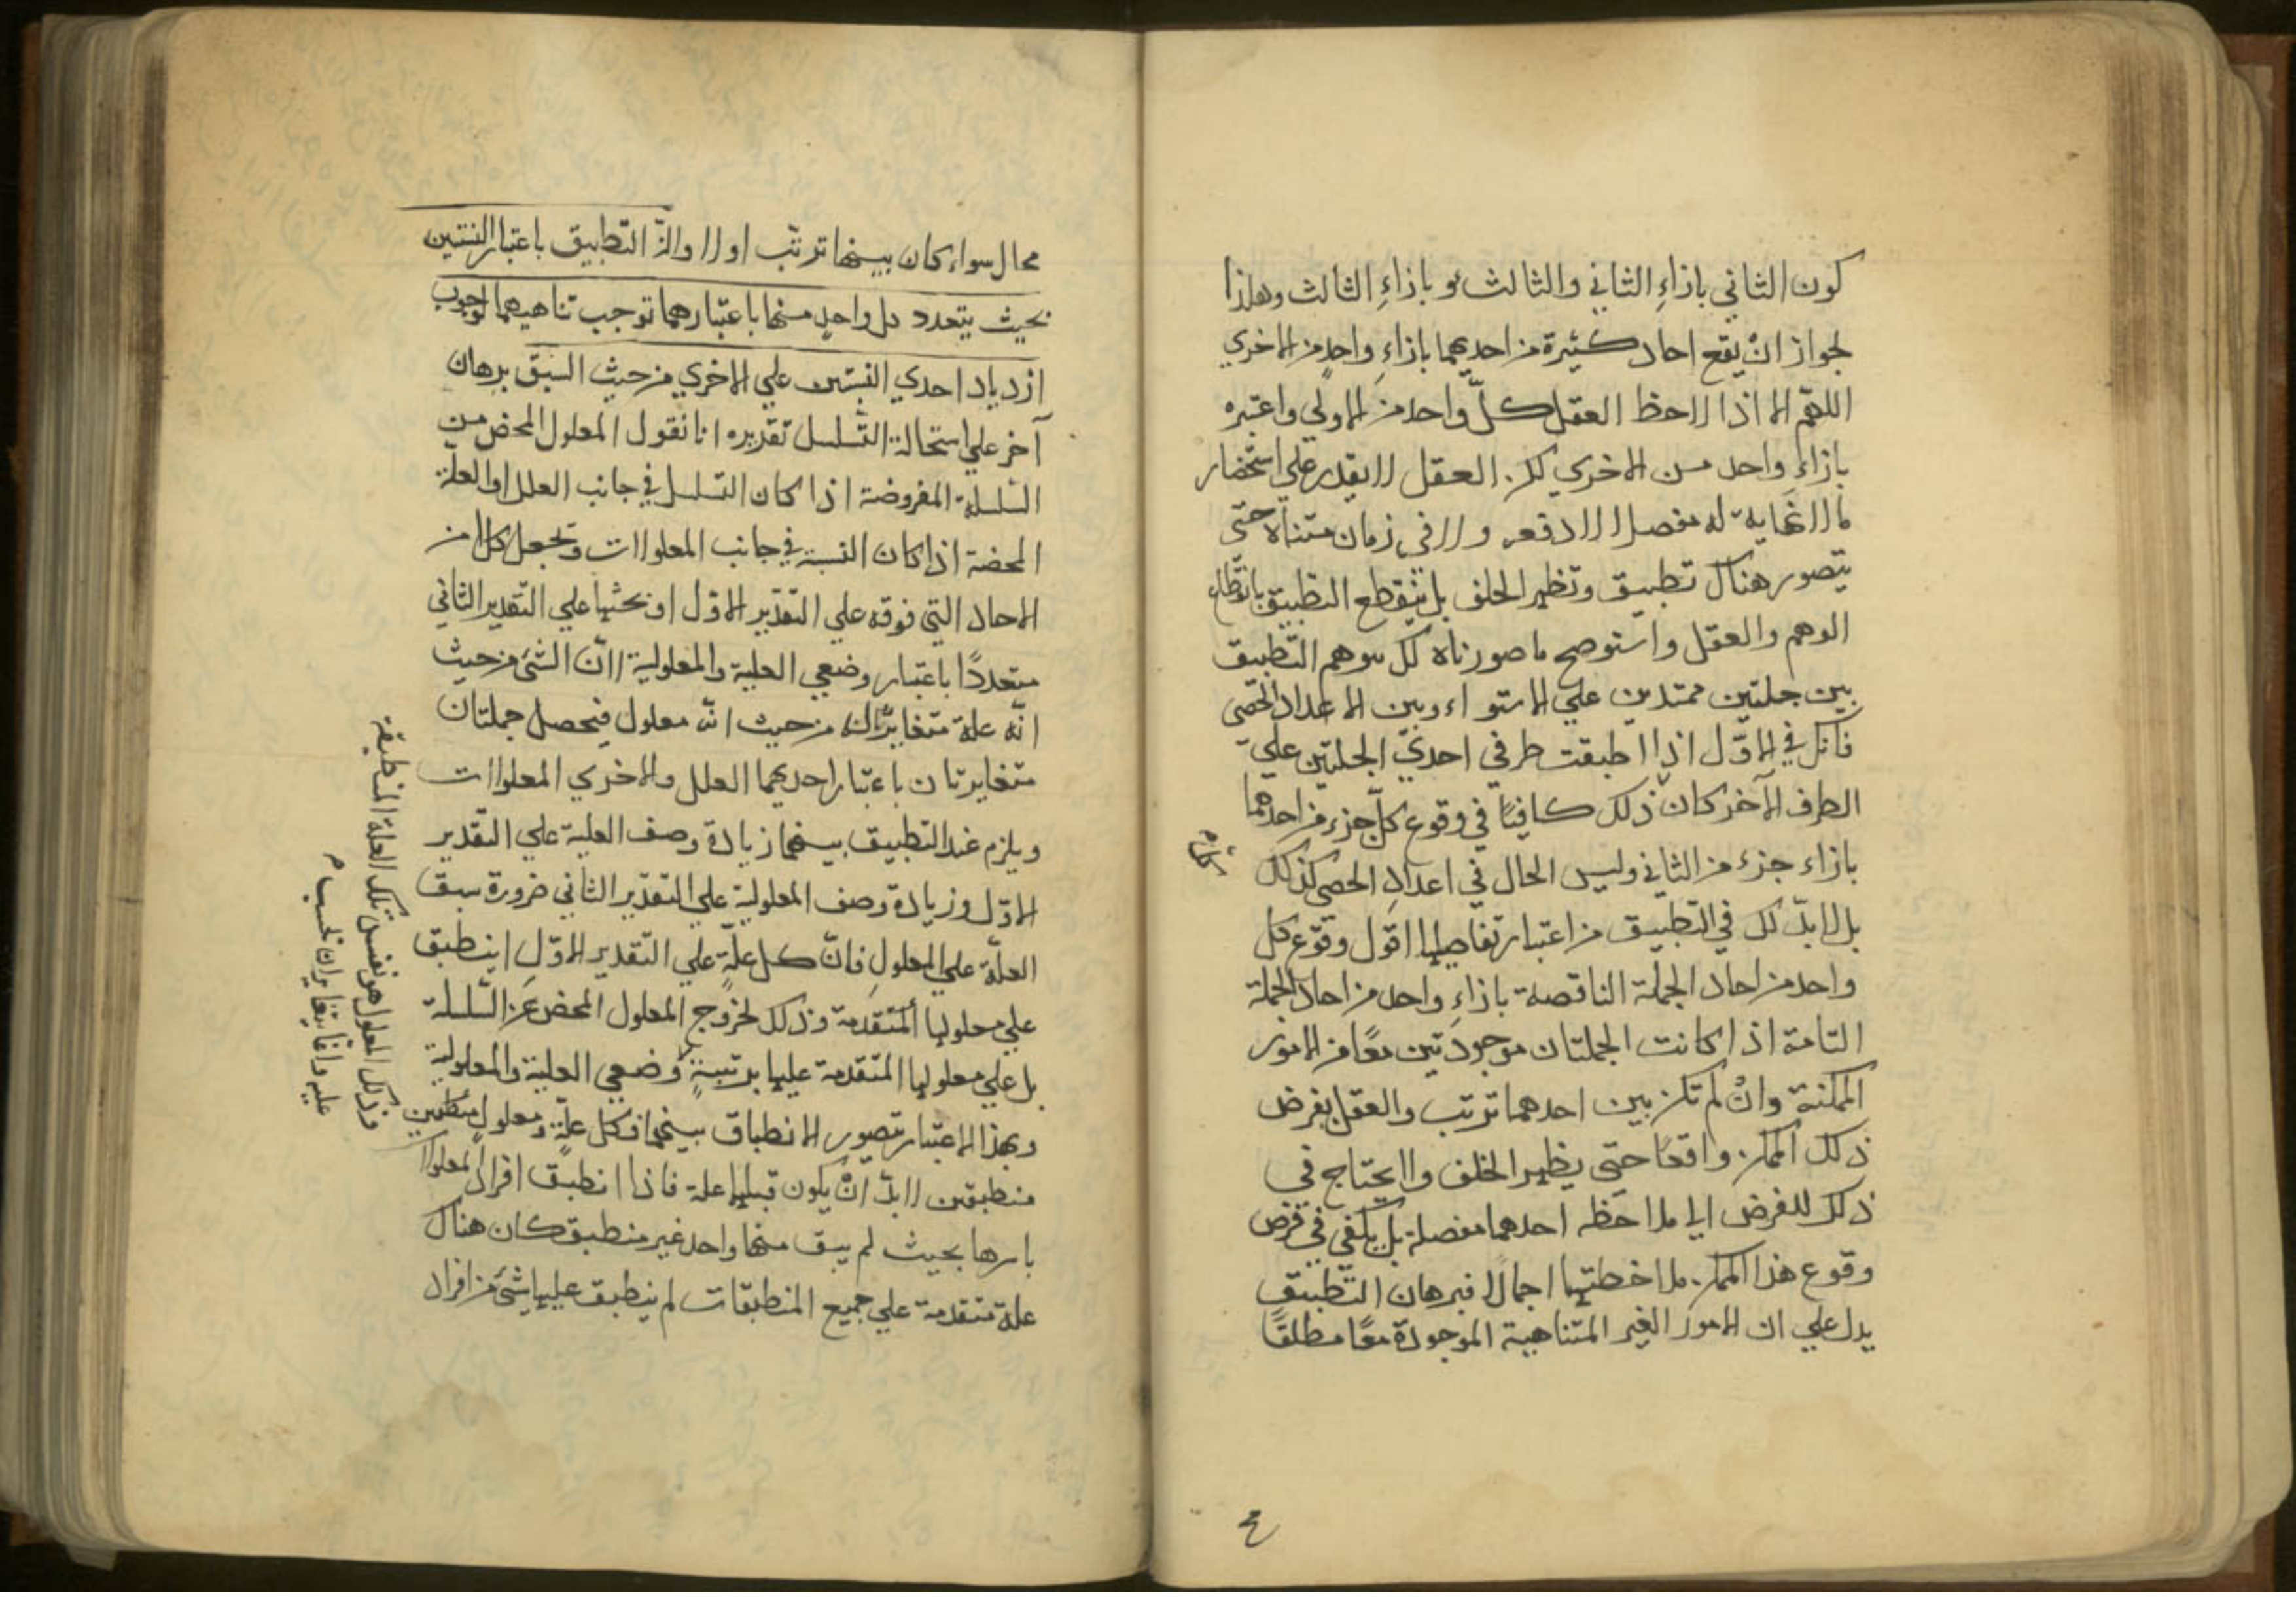 كون الثاني بازاءِ الثاني والثالث بازاءِ الثالث وهكذا
لجواز انْ يقع احاد كثيرة من احديهما بازاءِ واحدٍ من الاخري
اللهّم الا اذا لاحظ العقل كلّ واحد من الاولي واعتبره
بازاءِ واحد من الاخري لكن العقل لا يقدر علي استحضار
ما لا نهاية له مفصلا لا دفعة ولا في زمان متناه حتى
يتصور هناك تطبيق وتظهر الخلف بل ينقطع التطبيق بانقطاع
الوهم والعقل واستوضح ما صورناه لك بتوهم التطبيق
بين جملتين ممتدين علي الاستواء وبين الاعداد الحصي
فانك في الاوّل اذا طبقت طرفي احدي الجملتين علي
الطرف الآخر كان ذلك كافيًا في وقوع كلّ جزء من احدهما
بازاء جزء من الثاني وليس الحال في اعداد الحصي كذلك
بل لا بدّ لك في التطبيق من اعتبار تفاصيلها اقول وقوع كل
واحد من احاد الجملة الناقصة بازاءِ واحد من احاد الجملة
التامة اذا كانت الجملتان موجودتين معًا من الامور
الممكنة وانْ لم تكن بين احدهما ترتب والعقل بفرض
ذلك الممكن واقعًا حتى يظهر الخلف ولا يحتاج في
ذلك للفرض الي ملاحظه احدهما مفصلة بل يكفي في فرض
وقوع هذا الممكن ملاحظتها اجمالا فبرهان التطبيق
يدل علي ان الامور الغير المتناهية الموجودة معًا مطلقًا
٤
محال سواء كان بينهما ترتّب او لا والذّ التطبيق باعتبار النسبتين
بحيث يتعدد كل واحدٍ منهما باعتبارهما توجب تناهيهما لوجوب
ازدياد احدي النسبتين علي الاخري من حيث السبق برهان
آخر علي استحالة التسلسل تقريره انا نقول المعلول المحض من
السّلسلة المفروضة اذا كان التسلسل في جانب العلل او العلّة
المحضة اذا كان النسبة في جانب المعلولات وتجعل كلا من
الاحاد التي فوقه علي التقدير الاوّل او تحتها علي التقدير الثاني
متعددًا باعتبار وضعي العلية والمعلولية لانّ الشئ من حيث
انّه علة متغاير له من حيث انّه معلول فيحصل جملتان
متغايرتان باعتبار احديهما العلل والاخري المعلولات
ويلزم عند التطبيق بينهما زيادة وصف العلية علي التقدير
الاوّل وزيادة وصف المعلولية علي التقدير الثاني ضرورة سبق
العلّة علي المعلولِ فانّ كل علّةٍ علي التقدير الاوّلِ لا ينطبق
علي معلولها المتقدمة وذلك لخروج المعلول المحض عن السّلسلة
بل علي معلولها المتقدمة عليها برتبةٍ وضعي العلية والمعلولية
وبهذا الاعتبار يتصور الانطباق بينهما فكل علّة ومعلول منطبقين
منطبقين لا بدّ انْ يكون قبلها علة فاذا انطبق افراد المعلولا
باسرها بحيث لم يبق منها واحد غير منطبق كان هناك
علة متقدمة علي جميع المنطبقات لم ينطبق عليها شئ من افراد
وذلك المعلول هو نفس تلك العلة المنطبقة
عليه وانما يتغايران بحسب م